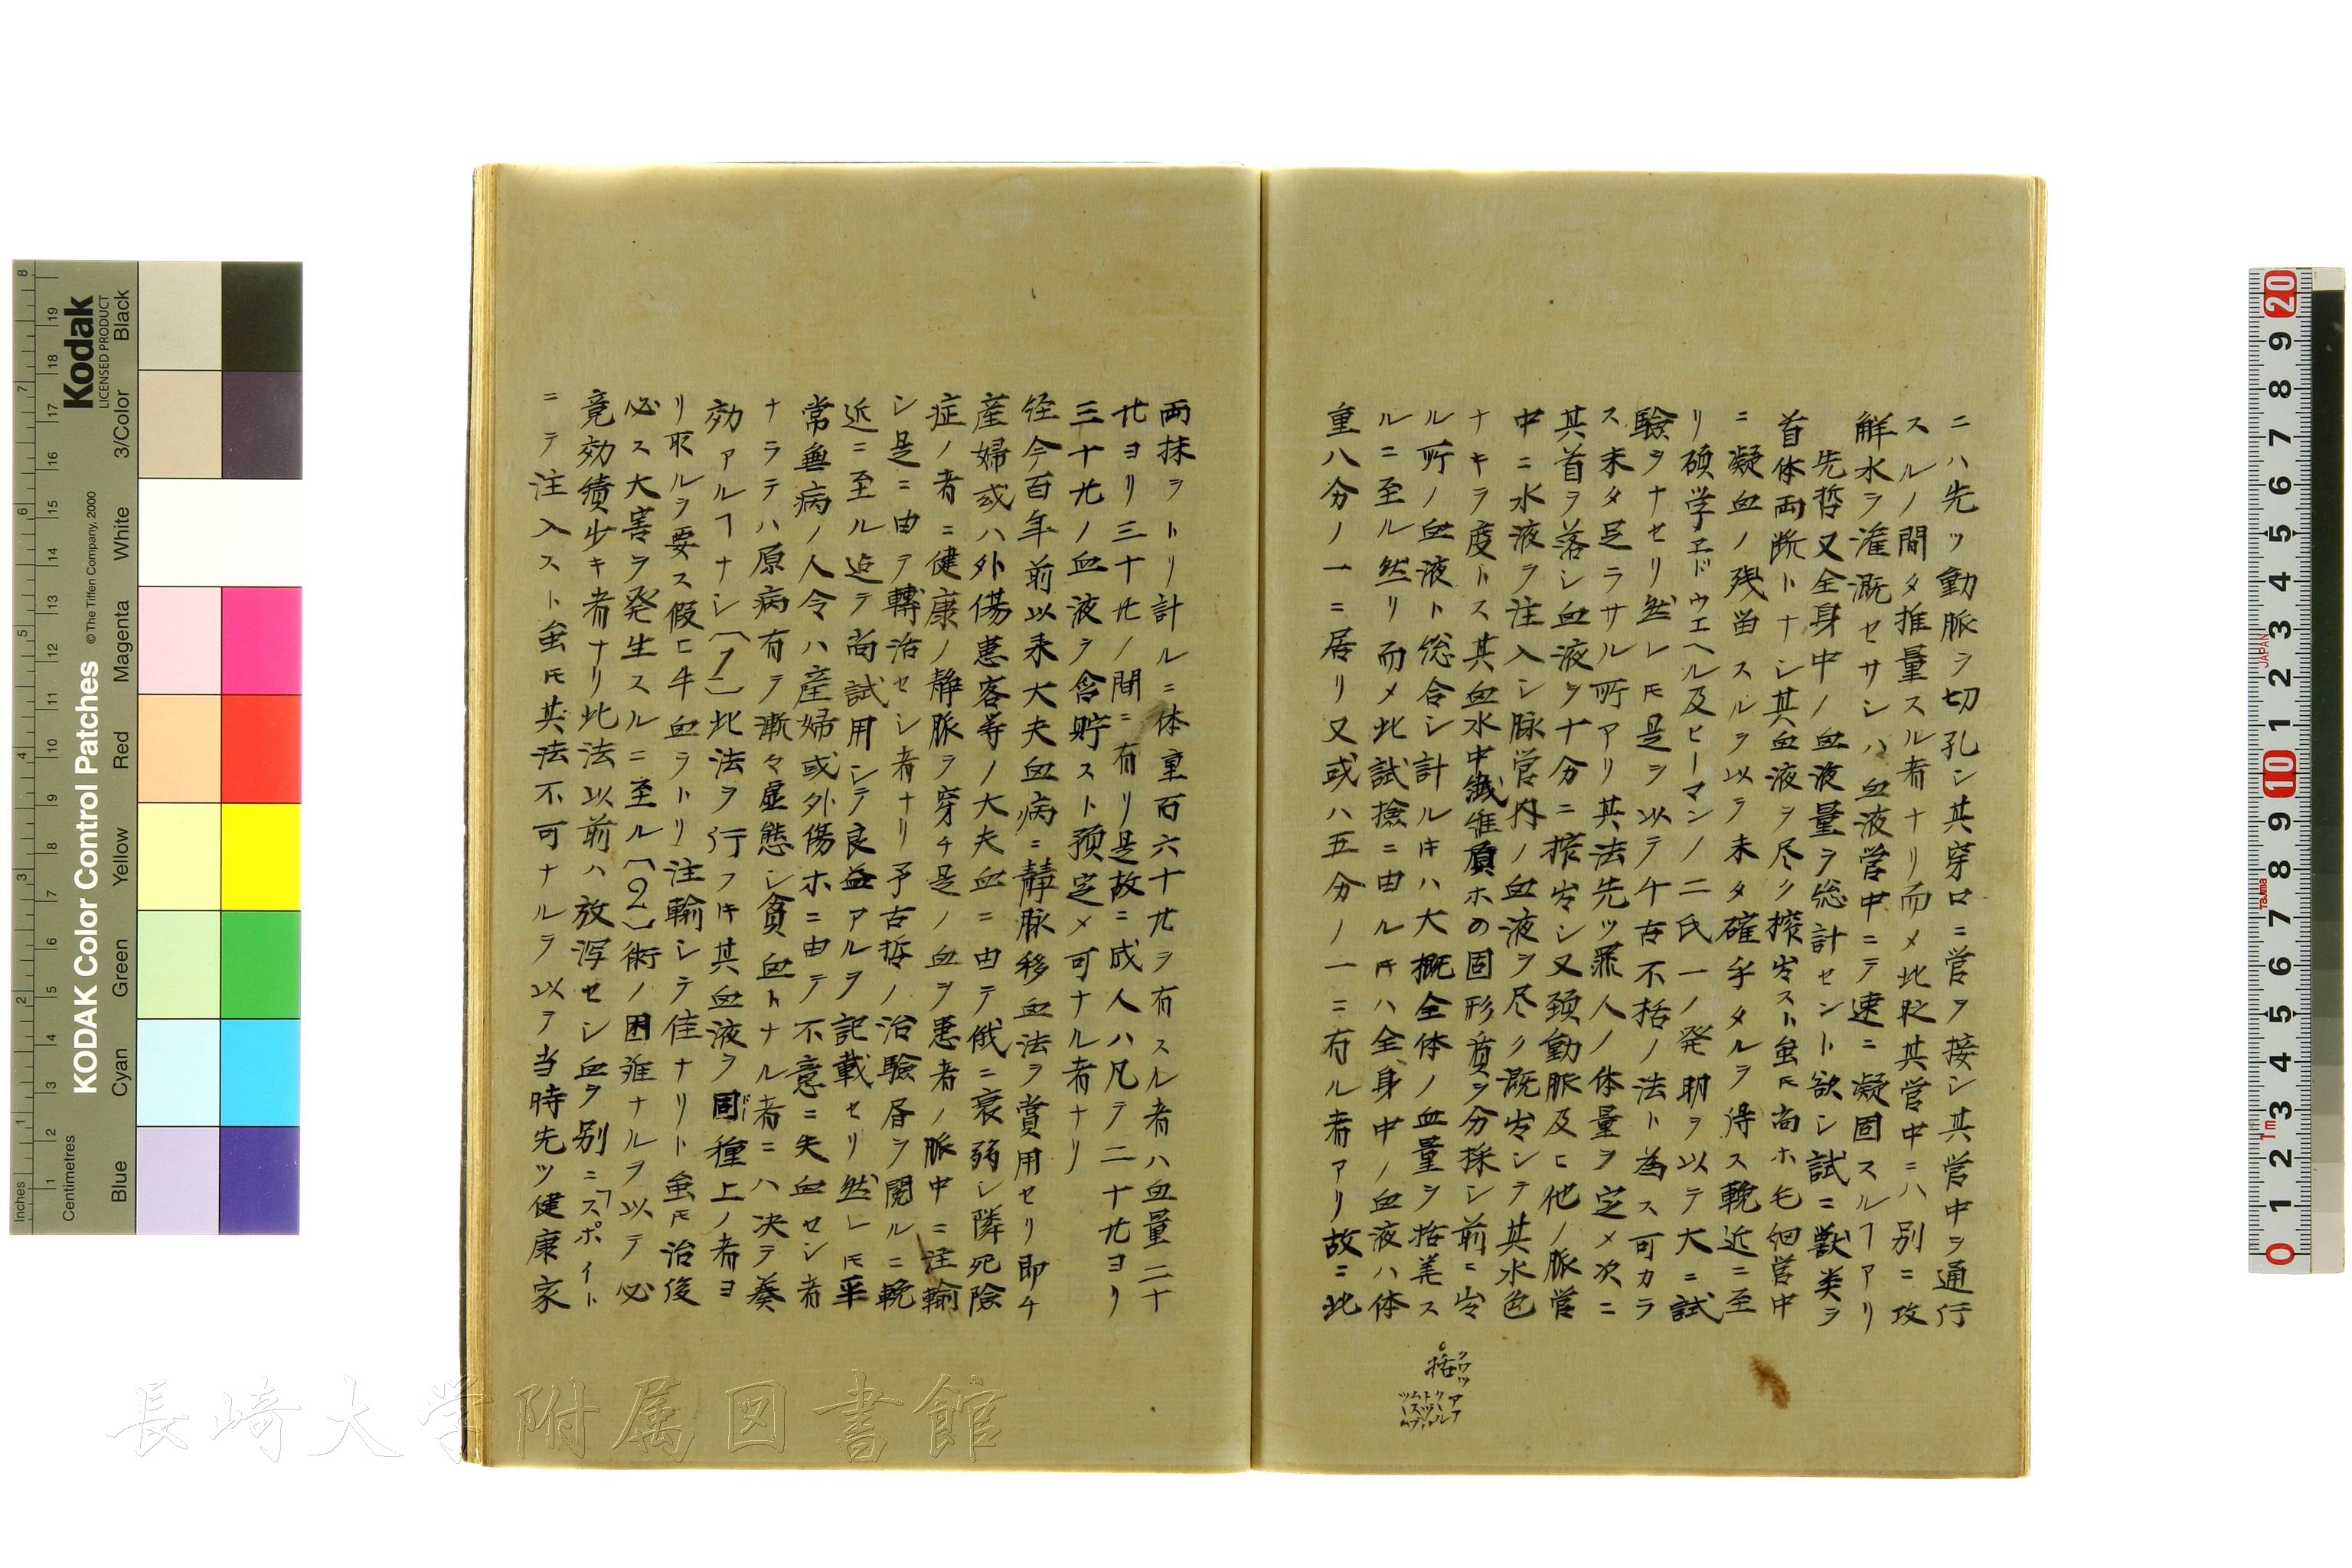 ニハ先ッ動脈ヲ切孔シ其穿口ニ管ヲ接シ其管中ヲ通行
スルノ間タ推量スル者ナリ而メ此际其管中ニハ別ニ攻
鮮水ヲ潅漑セサシハ血液管中ニテ速ニ凝固スルヿアリ
先哲又全身中ノ血液量ヲ総計セント欲シ試ニ獣类ヲ
首体両断トナシ其血液ヲ尽ク搾出スト虽𪜈尚ホ毛細管中
ニ凝血ノ残畄スルヲ以ラ未タ確乎タルヲ得ス輓近ニ至
リ碩学エドウエヘル及ヒーマンノ二氏一ノ発明ヲ以テ大ニ試
験ヲナセリ然レ𪜈是ヲ以テ千古不括ノ法ト為ス可カラ
ス未タ足ラサル所アリ其法先ッ罪人ノ体量ヲ定メ次ニ
其首ヲ落シ血液ヲ十分ニ搾出シ又頚動脈及ヒ他ノ脈管
中ニ水液ヲ注入シ脉管内ノ血液ヲ尽ク溉出シテ其水色
ナキヲ度トス其血水中繊維質ホの固形質ヲ分採シ前ニ出
ル所ノ血液ト総合シ計ルキハ大概全体ノ血量ヲ括算ス
ルニ至ル然リ而メ此試撿ニ由ルキハ全身中ノ血液ハ体
重八分ノ一ニ居リ又或ハ五分ノ一ニ有ル者アリ故ニ此
括
両抹ヲトリ計ルニ体重百六十听ヲ有スル者ハ血量二十
听ヨリ三十听ノ間ニ有リ是故ニ成人ハ凡テ二十听ヨリ
三十听ノ血液ヲ含貯スト預定メ可ナル者ナリ
径今百年前以来大夫血病ニ静脉移血法ヲ賞用セリ即チ
産婦或ハ外傷患客等ノ大夫血ニ由テ俄ニ衰弱シ隣死険
症ノ者ニ健康ノ静脈ヲ穿チ是ノ血ヲ患者ノ脈中ニ注輸
シ是ニ由テ轉治セシ者ナリ予古哲ノ治驗㫪ヲ閲ルニ輓
近ニ至ル迠テ尚試用シテ良益アルヲ記載セリ然レ𪜈平
常無病ノ人令ハ産婦或外傷ホニ由テ不意ニ失血セシ者
ナラテハ原病有テ漸々虚態シ貧血トナル者ニハ决テ奏
効アルヿナシ〔1〕此法ヲ行フキ其血液ヲ同種上ノ者ヨ
リ取ルヲ要ス假ヒ牛血ラトリ注輸シテ佳ナリト虽𪜈治後
必ス大害ヲ発生スルニ至ル〔2〕術ノ困難ナルヲ以テ必
竟効績少キ者ナリ此法以前ハ放泻セシ血ヲ別ニ「スポイト
ニテ注入スト虽𪜈其法不可ナルヲ以ラ当時先ッ健康家
長崎大学附属図書館
Kodak
LICENSED PRODUCT
KODAK Color Control Patches
© The Tiffen Company, 2000
Inches
Centimetres
Blue Cyan Green Yellow Red Magenta White 3/Color Black
JAPAN
Tajima